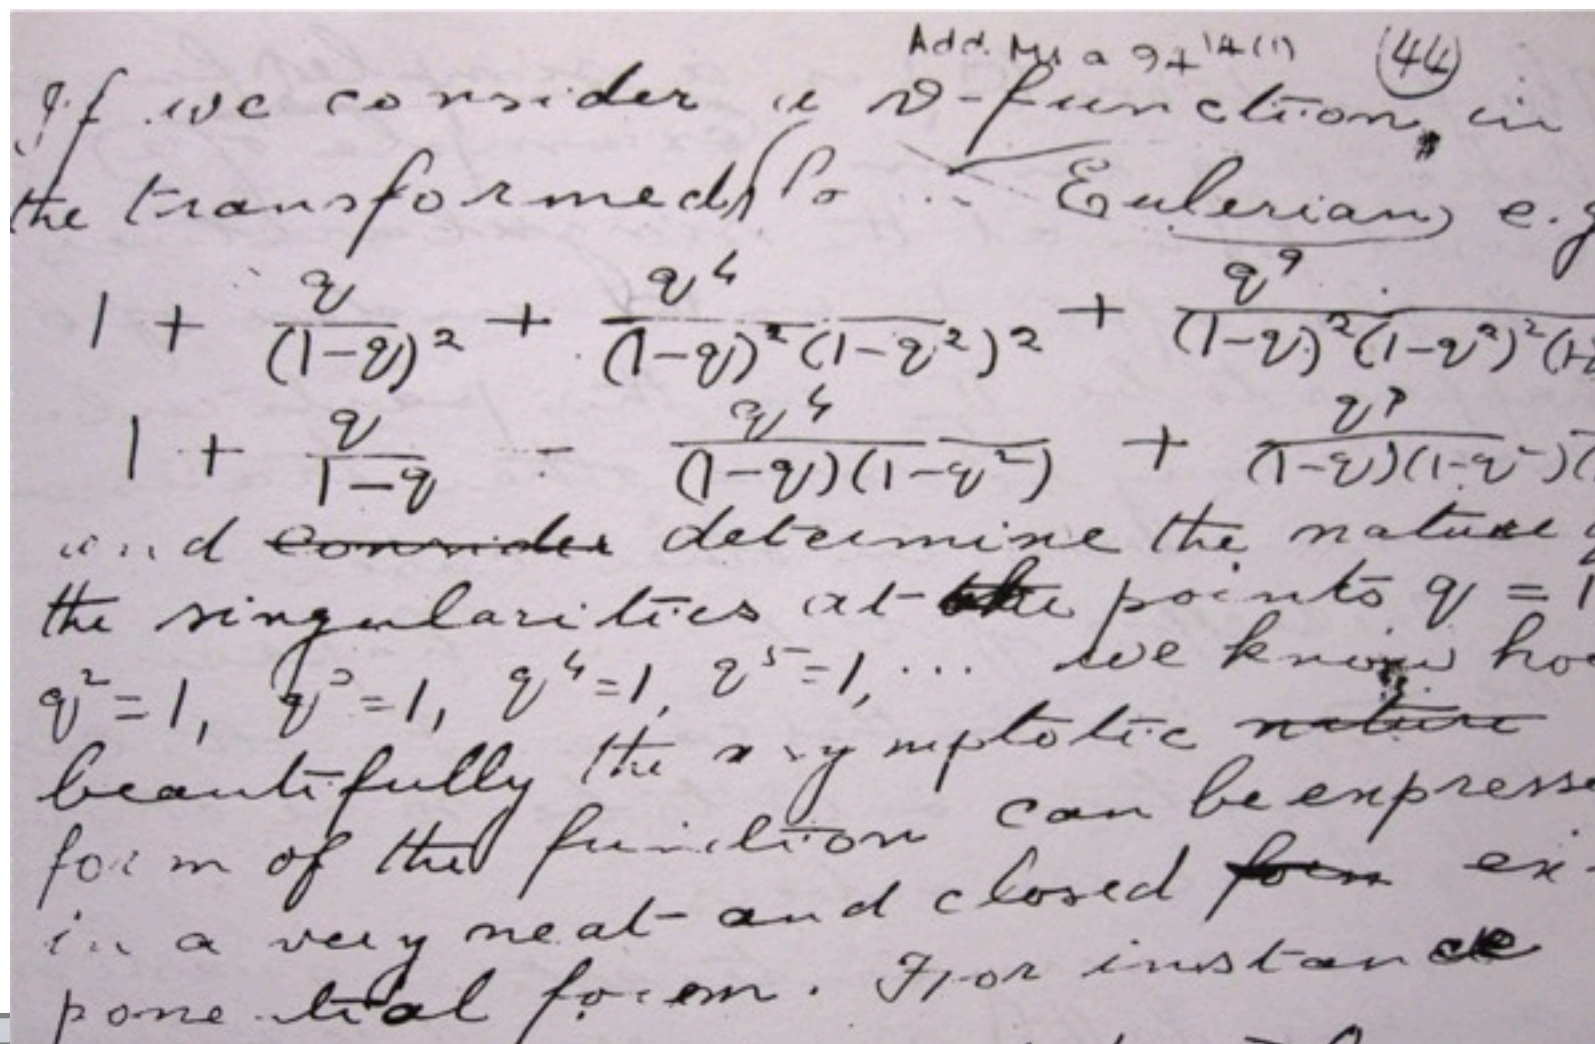 Add. Ms a 94 14(1) (44)
If we consider a ϑ-function in
the transformed Eulerian e.g
1 + q/(1-q)² + q⁴/(1-q)²(1-q²)² + q⁹/(1-q)²(1-q²)²(1-
1 + q/1-q - q⁴/(1-q)(1-q²) + q⁹/(1-q)(1-q²)(
and consider determine the nature
the singularities at the points q = 1
q²=1, q³=1, q⁴=1, q⁵=1, ... we know ho
beautifully the asymptotic nature
form of the function can be expresse
in a very neat and closed form ex-
ponential form. For instance